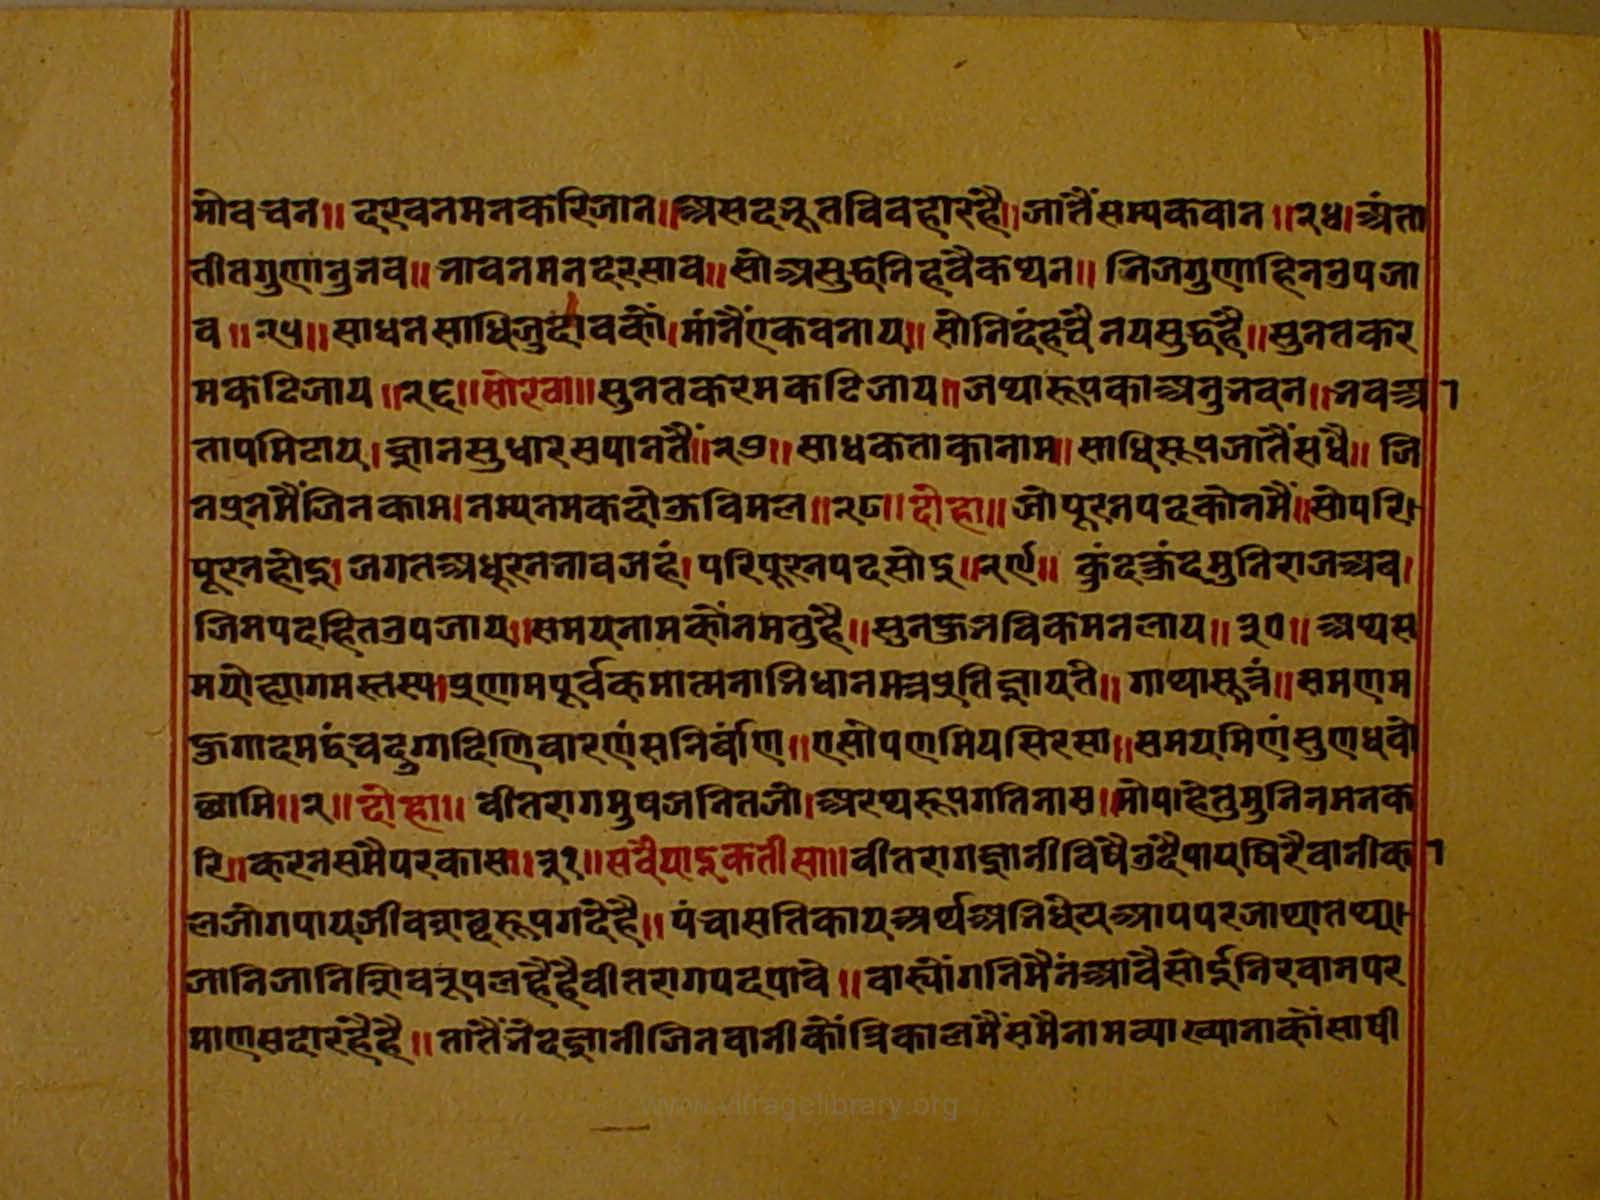 मोवचन॥ दरवनमनकरिजान॥असदभूतविवहारहै॥जातैंसम्यकवान॥२४॥अंता
तीतगुणानुभव॥भावनमनदरसाव॥सोअसुद्धनिहवैकथन॥निजगुणाहिनउपजा
व॥२५॥साधनसाधिजुदावकौं।मांनैंएकवनाय॥सोनिदंहचैनयसुद्धहै॥सुनतकर
मकटिजाय॥२६॥सोरठा॥सुनतकरमकटिजाय॥जथारूपकाअनुभवन॥भवआ
तापमिटाय।ज्ञानसुधारसपानतैं॥२७॥साधकताकानाम॥साधिरूपजातैंसधै॥जि
नप्रनमैंजिनकाम।नम्यनमकदोऊविमल॥२८॥दोहा॥जोपूरनपदकोनमैं॥सोपरि
पूरनहोइ।जगतअधूरनभावजहं।परिपूरनपदसोइ॥२९॥कुंदकुंदमुनिराजअव।
जिनपदहितउपजाय॥समयनामकौंनमतुहै॥सुनहुभविकमनलाय॥३०॥अथस
मयोह्यागमस्तस्य।प्रणामपूर्वकमात्मनाभिधानमत्रप्रतिज्ञायते॥गाथासूत्रं॥समणमु
हुगादमट्ठंचदुग्गदिणिवारणंसनिर्वाण॥एसोपणमियसिरसा॥समयमिणंसुणधवो
छामि॥२॥दोहा॥वीतरागमुषजनितजो।अरथरूपगतिनास॥मोषहेतुमुनिनमनक
रि।करनसमैपरकास॥३१॥सवैयाइकतीसा॥वीतरागज्ञानीविषैउदैपायषिरैवानीका
लजोगपायजीवग्राह्यरूपगदेहै॥पंचासतिकायअर्थअभिधेयआपपरजाथातथ्य
जानिजानिशिवरूपलहैंहैवीतरागपदपावे॥वास्योंगनिमैनंआवैसोईनिरवानपर
माणसदारहैहै॥तातैंभेदज्ञानीजिनवानीकोंत्रिकालमैंसमैनामव्याख्यानाकोंसाषी
www.vitragelibrary.org